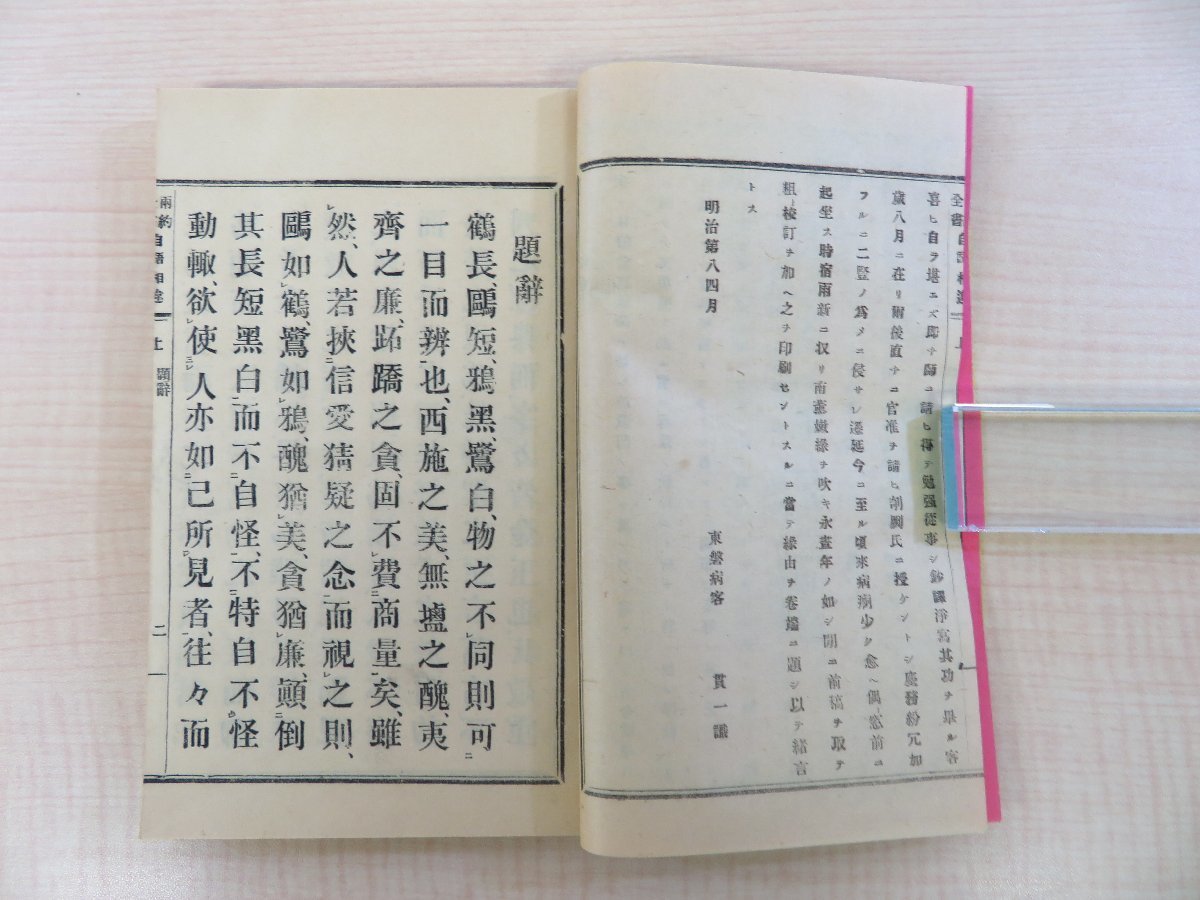 喜ヒ自ラ堪エズ即チ師ニ請ヒ得テ勉强從事シ鈔譯淨寫其功ヲ畢ル客
歲八月ニ在リ爾後直チニ官准ヲ請ヒ剞劂氏ニ授ケントシ塵務紛冗加
フルニ二豎ノ爲メニ侵サレ遷延今ニ至ル頃來病痾少ク愈ヘ偶窓前ニ
起坐ス時宿雨新ニ收リ南薰嫩綠ヲ吹キ永晝年ノ如シ閒ニ前稿ヲ取テ
粗校訂ヲ加ヘ之ヲ印刷セントスルニ當テ緣由ヲ卷端ニ題シ以テ緒言
トス
明治第八四月
東磐病客 貫一識
題辭
鶴長、鷗短、鴉黑、鷺白、物之不同則可
一目而辨也、西施之美、無鹽之醜、夷
齊之廉、跖蹻之貪、固不費商量矣、雖
然、人若挾信愛猜疑之念而視之則、
鷗如鶴、鷺如鴉、醜猶美、貪猶廉、顚倒
其長短黑白而不自怪、不特自不怪
動輙、欲使人亦如己所見者、往々而
上 題辭
二